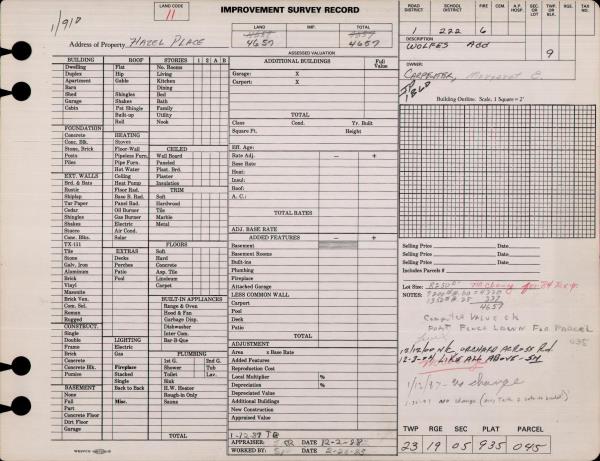 IMPROVEMENT SURVEY RECORD
LAND CODE
11
1/91
Address of Property Hazel Place
LAND
IMP.
TOTAL
4657
4657
ASSESSED VALUATION
ROAD DISTRICT
SCHOOL DISTRICT
FIRE
CEM.
A.P. HOSP.
SEC. OR LOT
TWP. OR BLK.
RGE.
TAX NO.
1
222
6
DESCRIPTION
WOLFES ADD
9
OWNER:
CARPENTER, Margaret E.
BUILDING
Dwelling
Duplex
Apartment
Barn
Shed
Garage
Cabin
FOUNDATION
Concrete
Conc. Blk.
Stone, Brick
Posts
Piles
EXT. WALLS
Brd. & Bats
Rustic
Shiplap
Tar Paper
Cedar
Shingles
Shakes
Stucco
Conc. Blks.
TX-111
Tile
Galv. Iron
Aluminum
Brick
Vinyl
Masonite
Brick Ven.
Com. Sel.
Roman
Rugged
CONSTRUCT.
Single
Double
Frame
Brick
Concrete
Concrete Blk.
Pumice
BASEMENT
None
Full
Part
Concrete Floor
Dirt Floor
Garage
ROOF
Flat
Hip
Gable
Shed
Shingles
Shakes
Pat Shingle
Built-up
Roll
HEATING
Stoves
Floor-Wall
Pipeless Furn.
Pipe Furn.
Hot Water
Ceiling
Heat Pump
Floor Rad.
Base B. Rad.
Panel Rad.
Oil Burner
Gas Burner
Electric
Air Cond.
Solar
EXTRAS
Decks
Porches
Patio
Pool
LIGHTING
Electric
Gas
Fireplace
Stacked
Single
Back to Back
Misc.
STORIES 1 2 A B
No. Rooms
Living
Kitchen
Dining
Bed
Bath
Family
Utility
Nook
CEILED
Wall Board
Paneled
Plast. Brd.
Plaster
Insulation
TRIM
Soft
Hardwood
Tile
Marble
Metal
FLOORS
Soft
Hard
Concrete
Asp. Tile
Linoleum
Carpet
BUILT-IN APPLIANCES
Range & Oven
Hood & Fan
Garbage Disp.
Dishwasher
Inter Com.
Bar-B-Que
PLUMBING
1st G. 2nd G.
Shower Tub
Toilet Lav.
Sink
H.W. Heater
Rough-in Only
Sauna
TOTAL
ADDITIONAL BUILDINGS
Full Value
Garage: X
Carport: X
TOTAL
Class Cond. Yr. Built
Square Ft. Height
Eff. Age:
Rate Adj. – +
Base:
Heat:
Insul:
Roof:
A. C.:
TOTAL RATES
ADJ. BASE RATE
ADDED FEATURES – +
Basement
Basement Rooms
Built-ins
Plumbing
Fireplace
Attached Garage
LESS COMMON WALL
Carport
Deck
Patio
Porches
Pool
TOTAL
ADJUSTMENT
Area x Base Rate
Added Features
Reproduction Cost
Local Multiplier %
Depreciation %
Depreciated Value
Additional Buildings
New Construction
Appraised Value
APPRAISER: DATE 12-2-88
WORKED BY: DATE
Building Outline: Scale, 1 Square = 2'
Selling Price Date
Selling Price Date
Selling Price Date
Includes Parcels #
Lot Size:
NOTES:
4657
Computer Value ok
LAWN FOR PARCEL
ORCHARD ACROSS Rd.
LIKE ALL ABOVE
1/12/87 - no change
TWP RGE SEC PLAT PARCEL
23 19 05 935 045